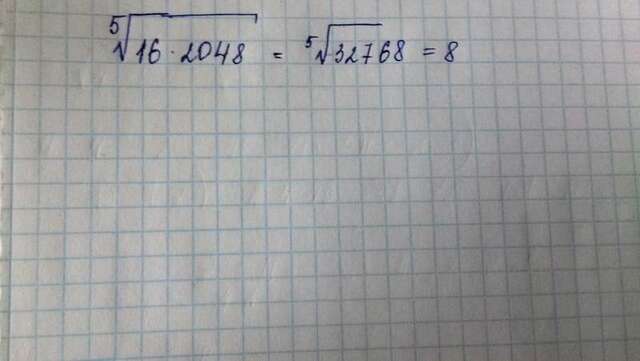 ⁵√16 · 2048 = ⁵√32768 = 8